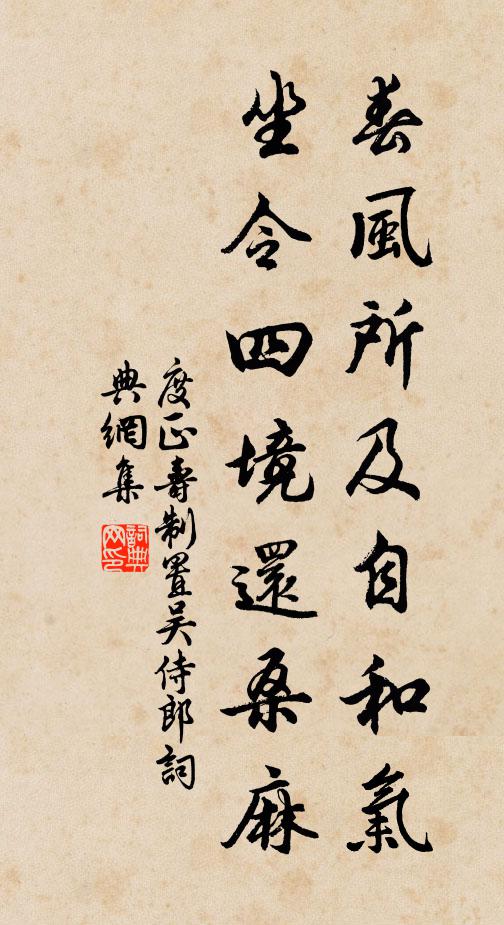 春風所及自和氣
坐令四境還桑麻
度正壽制置吳侍郎詞
典網集
詞典網印